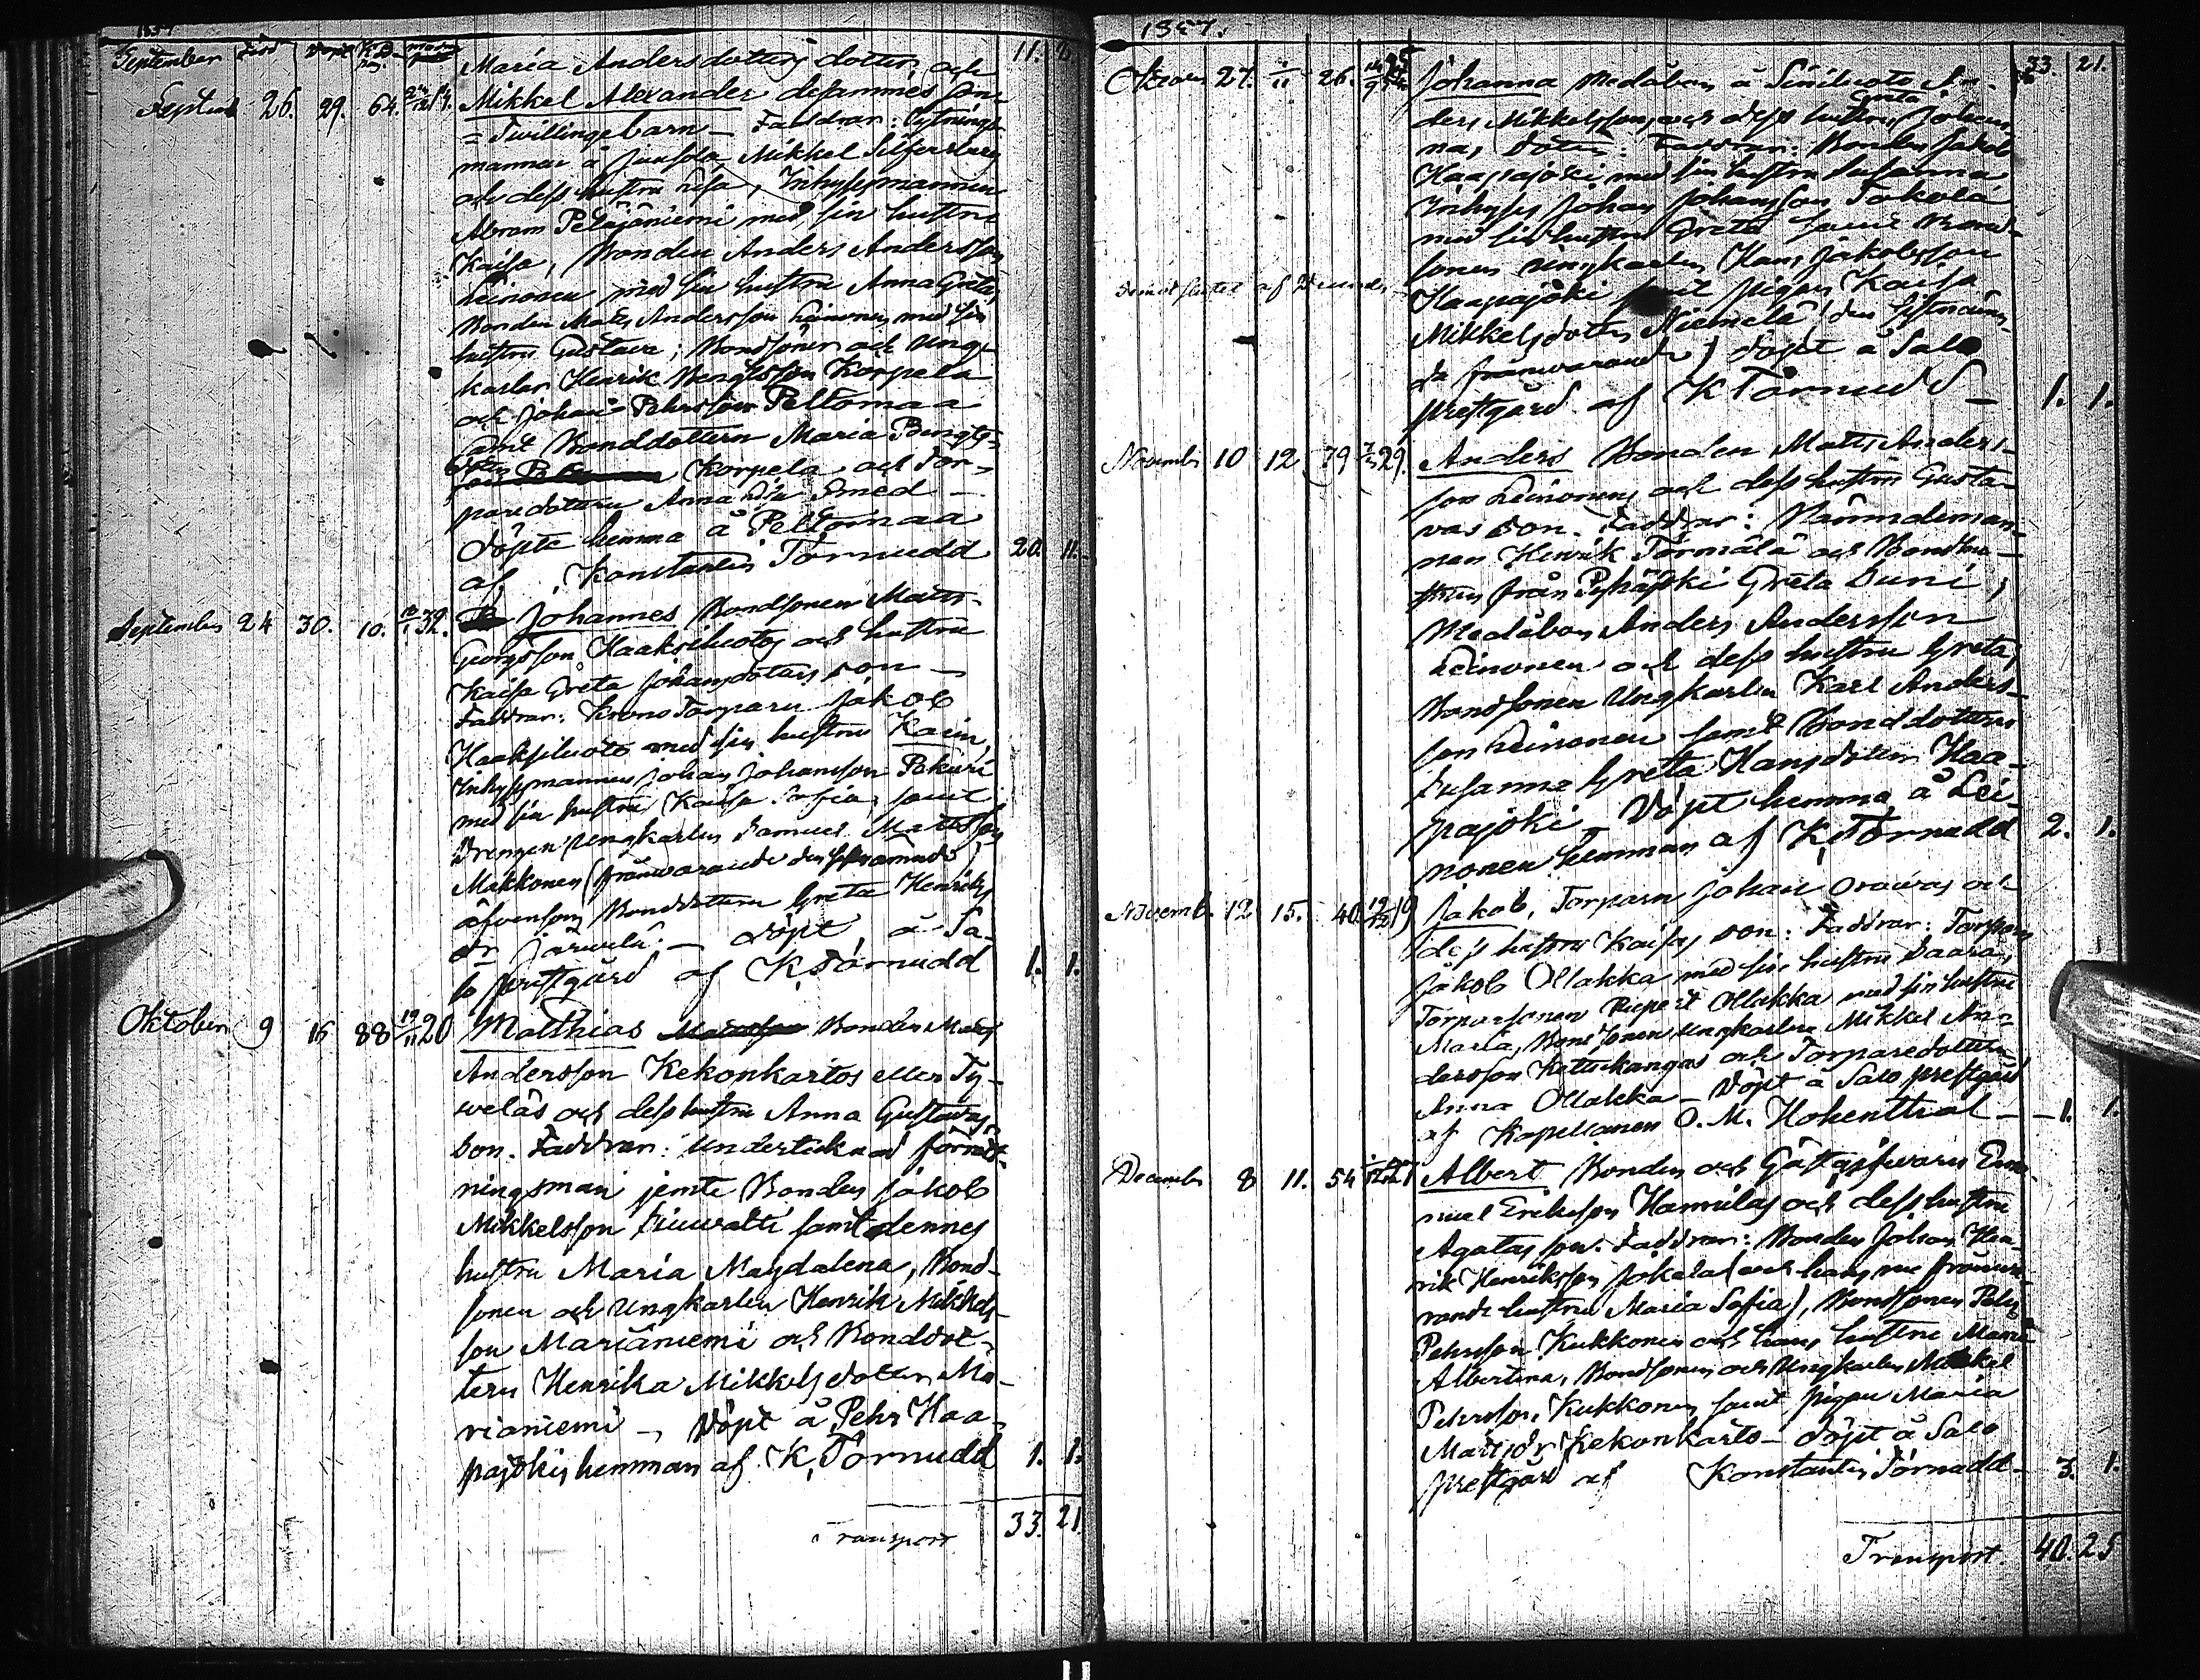 1857
September Född Döpt K.B. pag.
Maria Andersdotters dotter och 11.
Septemb 26. 29. 64. Mikkel Alexander desammes son
= Twillingebarn - Faddrar:
mannen å Mikkel Silfversberg
och dess hustru Lisa, Inhysesmannen
Abram Petäjäniemi med sin hustru
Kaisa, Bonden Anders Andersson
Leinonen med sin hustru Anna Greta,
Bonden Matts Andersson Leinonen med sin
hustru Gustava; Bondsonen och Ung-
karlar Henrik Bengtsson Korpela
och Johan Pehrsson Peltomaa
samt Bonddottern Maria Bengts-
Korpela och Tor-
paredottern Anna Smed -
Döpta hemma å Peltomaa
af Konstantin Törnudd 20. 11.
September 24 30. 10. 32. Johannes Bondsonen Matts
Georgsson Haaksiluotos och hustru
Kaisa Greta Johansdotters son -
Faddrar: Krono Torparn Jakob
Haaksiluoto med sin hustru Karin,
Inhysesmannen Johan Johansson Pekuri
med sin hustru Kaisa Sofia, samt
Drengen Ungkarlen Samuel Mattsson
Makkonen (frånwarande den sistnämnde)
äfvensom Bonddottern Greta Henriks
dr Järwelä; - Döpt å Sa-
lo prestgård af K Törnudd 1. 1.
Oktober 9 16 88 19/11 20 Matthias Bonden Matts
Andersson Kekonkartos eller Ty-
weläs och dess hustru Anna Gustavas
Son. Faddrar: undertecknad förrätt-
ningsman jemte Bonden Jakob
Mikkelsson samt dennes
hustru Maria Magdalena, Bond-
sonen och Ungkarlen Henrik Mikkels-
son Marianiemi och Bonddot-
tern Henrika Mikkelsdotter Ma-
rianiemi -, Döpt å Pehr Haa-
pajokis hemman af K, Törnudd 1. 1.
Transport 33. 21.
1857.
33. 21.
Oktober 27. 1/11 26. Johanna Medåboen å Siniluoto An-
ders Mikkelssons och dess hustru Greta Johan-
nas Dotter: Faddrar: Bonden Jakob
Haapajoki med sin hustru Susanna
Inhyses Johan Johansson Tokola
med sin hustru Greta samt Bond-
sonen Ungkarlen Hans Jakobsson
Haapajoki samt pigan Kaisa
Mikkelsdotter Niemelä (den sistnämn-
da frånwarande) döpt å Salo
prestgård af K Törnudd - 1. 1.
Novemb 10 12 79 29. Anders Bonden Matts Anders-
son Leinonens och dess hustru Gusta-
vas Son. Faddrar: Nämndeman-
nen Henrik Törmälä och Bondhu-
strun från Pyhäjoki Greta Suni,
Medåboen Anders Andersson
Leinonen och dess hustru Greta,
Bondsonen Ungkarlen Karl Anders-
son Leinonen samt Bonddottern
Susanna Greta Hansdotter Haa-
pajoki - Döpt hemma å Lei-
nonen hemman af K, Törnudd 2. 1.
Novemb. 12 15. 40. 19/12 19 Jakob, Torparn Johan Orawas och
dess hustru Kaisas son: Faddrar: Torparn
Jakob Ollakka med sin hustru Saara,
Torparsonen Rupert Ollakka med sin hustru
Maria, Bondsonen Ungkarlen Mikkel An-
dersson Kattukangas och Torparedottern
Anna Ollakka - Döpt å Salo prestgård
af Kapellanen O. M. Hohenthal - 1. 1.
December 8 11. 54 Albert Bonden och Gästgifwaren Ema-
nuel Eriksson Hannilas och dess hustru
Agatas son. Faddrar: Bonden Johan Hen-
rik Henriksson Jokela (och hans nu frånwa-
rande hustru Maria Sofia), Bondsonen Pehr
Pehrsson Kukkonen och hans hustru Maria
Albertina, Bondsonen och Ungkarlen Mikkel
Pehrsson Kukkonen samt pigan Maria
Mattsdr Kekonkarto - Döpt å Salo
prestgård af Konstantin Törnudd - 3. 1.
Transport. 40. 25